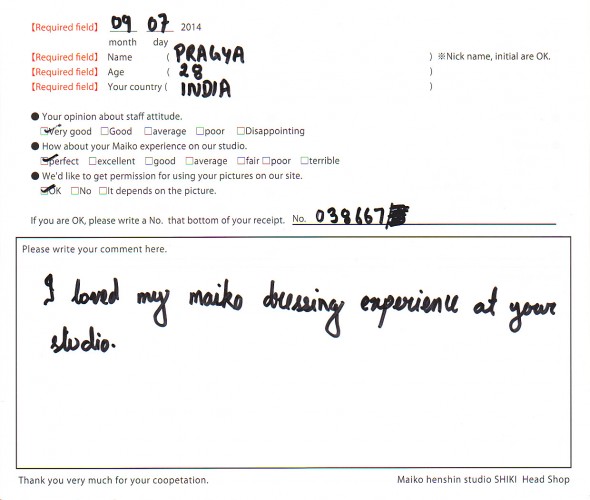 【Required field】 09 07 2014
month day
【Required field】 Name ( PRAGYA ) ※Nick name, initial are OK.
【Required field】 Age ( 28 )
【Required field】 Your country ( INDIA )
● Your opinion about staff attitude.
☑Very good □Good □average □poor □Disappointing
● How about your Maiko experience on our studio.
☑perfect □excellent □good □average □fair □poor □terrible
● We'd like to get permission for using your pictures on our site.
☑OK □No □It depends on the picture.
If you are OK, please write a No. that bottom of your receipt. No. 038667
Please write your comment here.
I loved my maiko dressing experience at your
studio.
Thank you very much for your coopetation. Maiko henshin studio SHIKI Head Shop